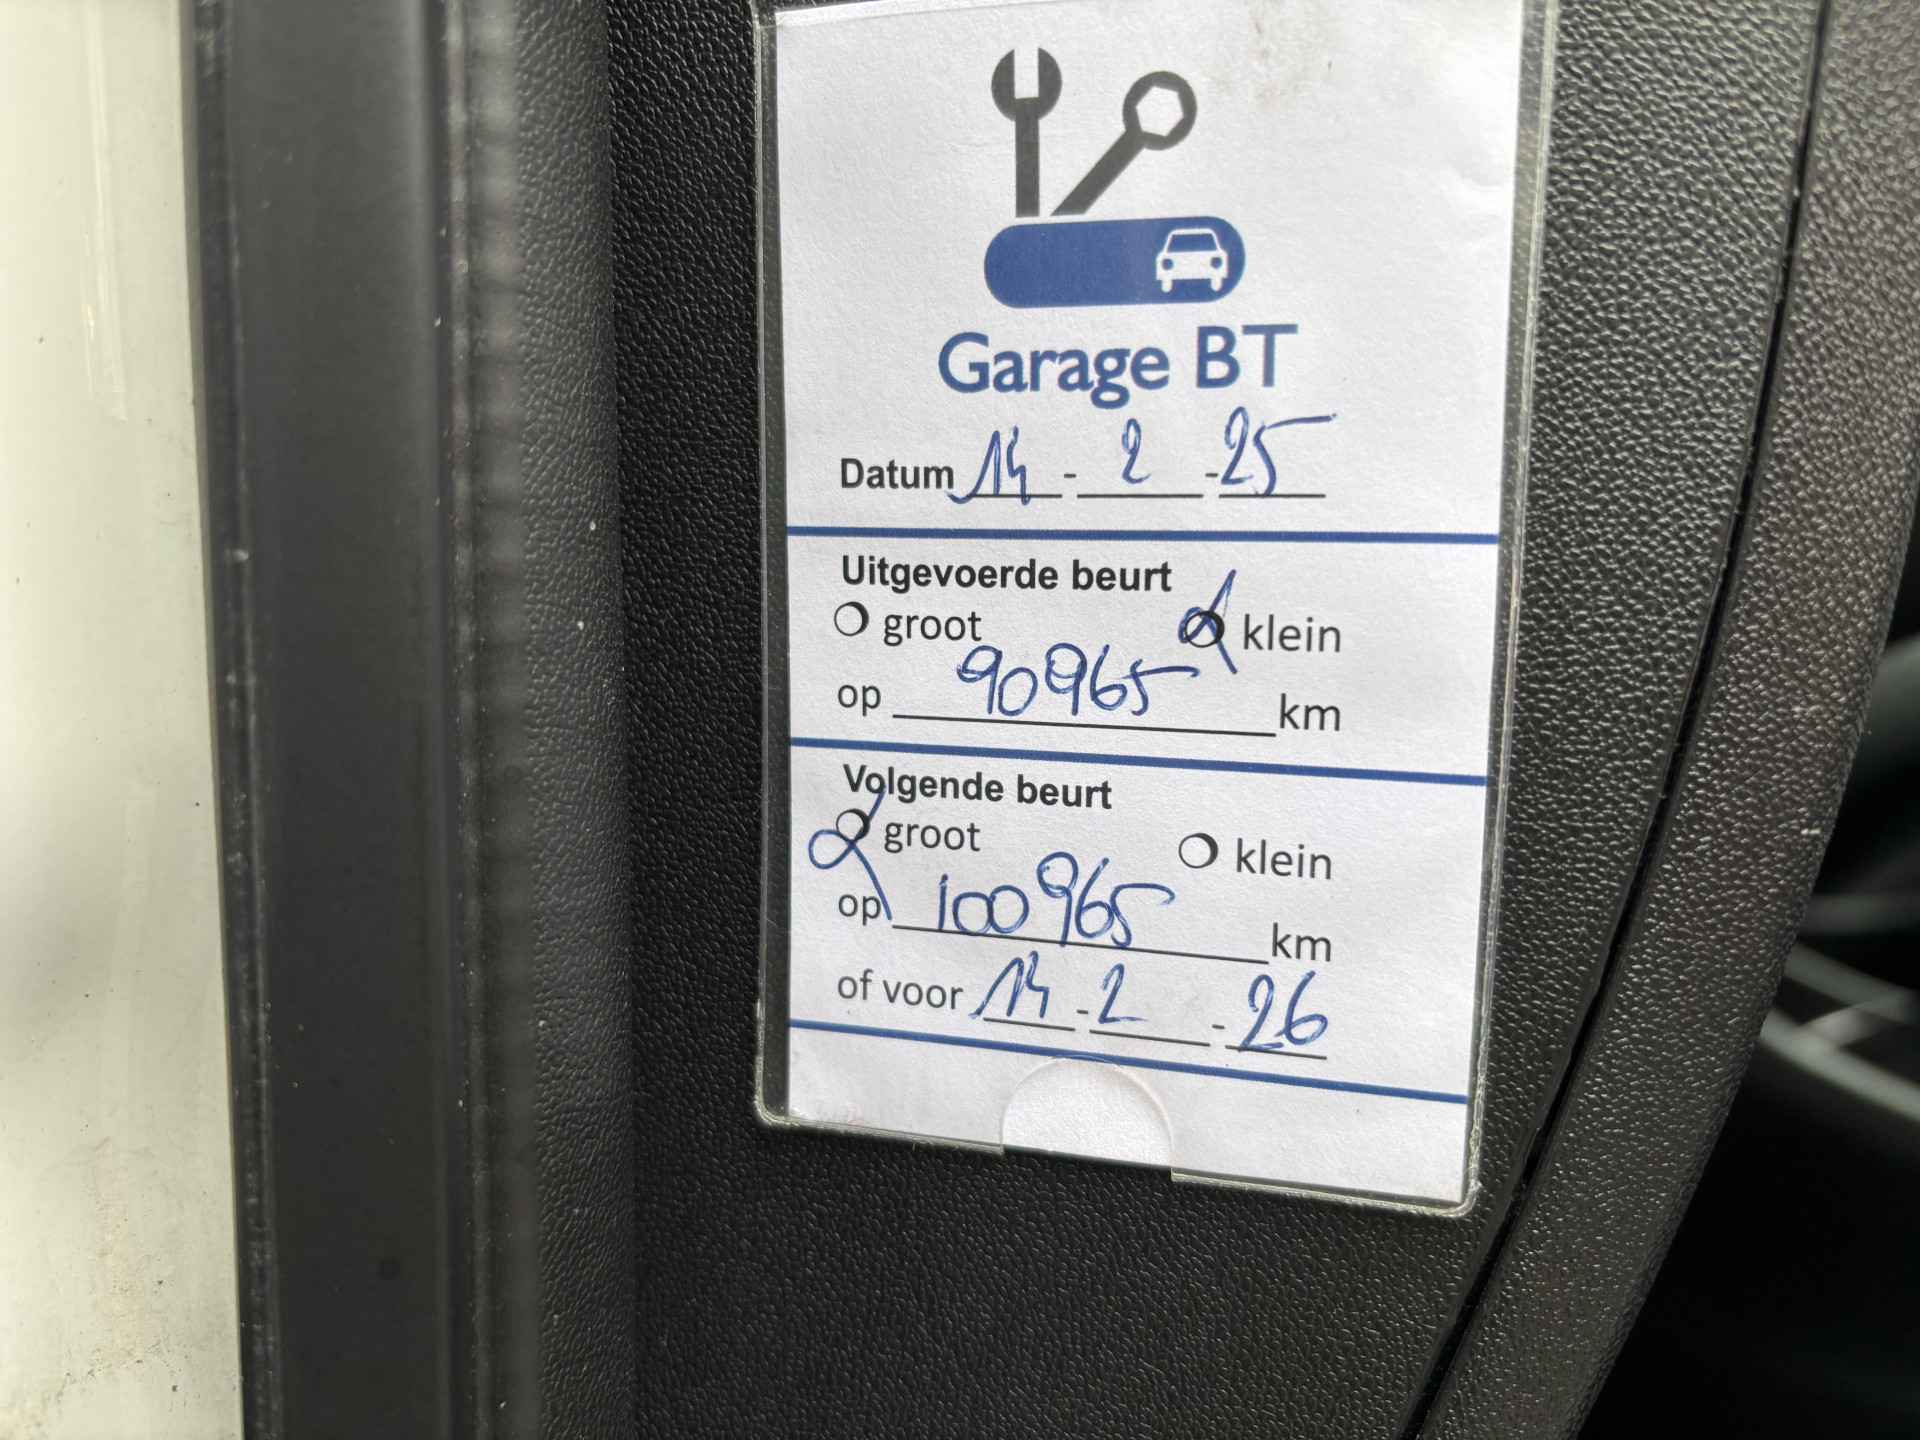 Garage BT
Datum 14 - 2 - 25
Uitgevoerde beurt
groot klein
op 90965 km
Volgende beurt
groot klein
op 100965 km
of voor 14 - 2 - 26